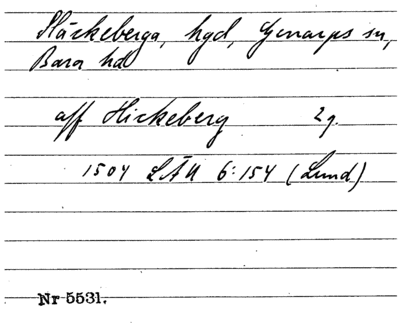 Släckeberga, hgd, Genarps sn,
Bara hd
aff Hickeberg 2 g.
1504 LÄU 6:154 (Lund)
Nr 5531.